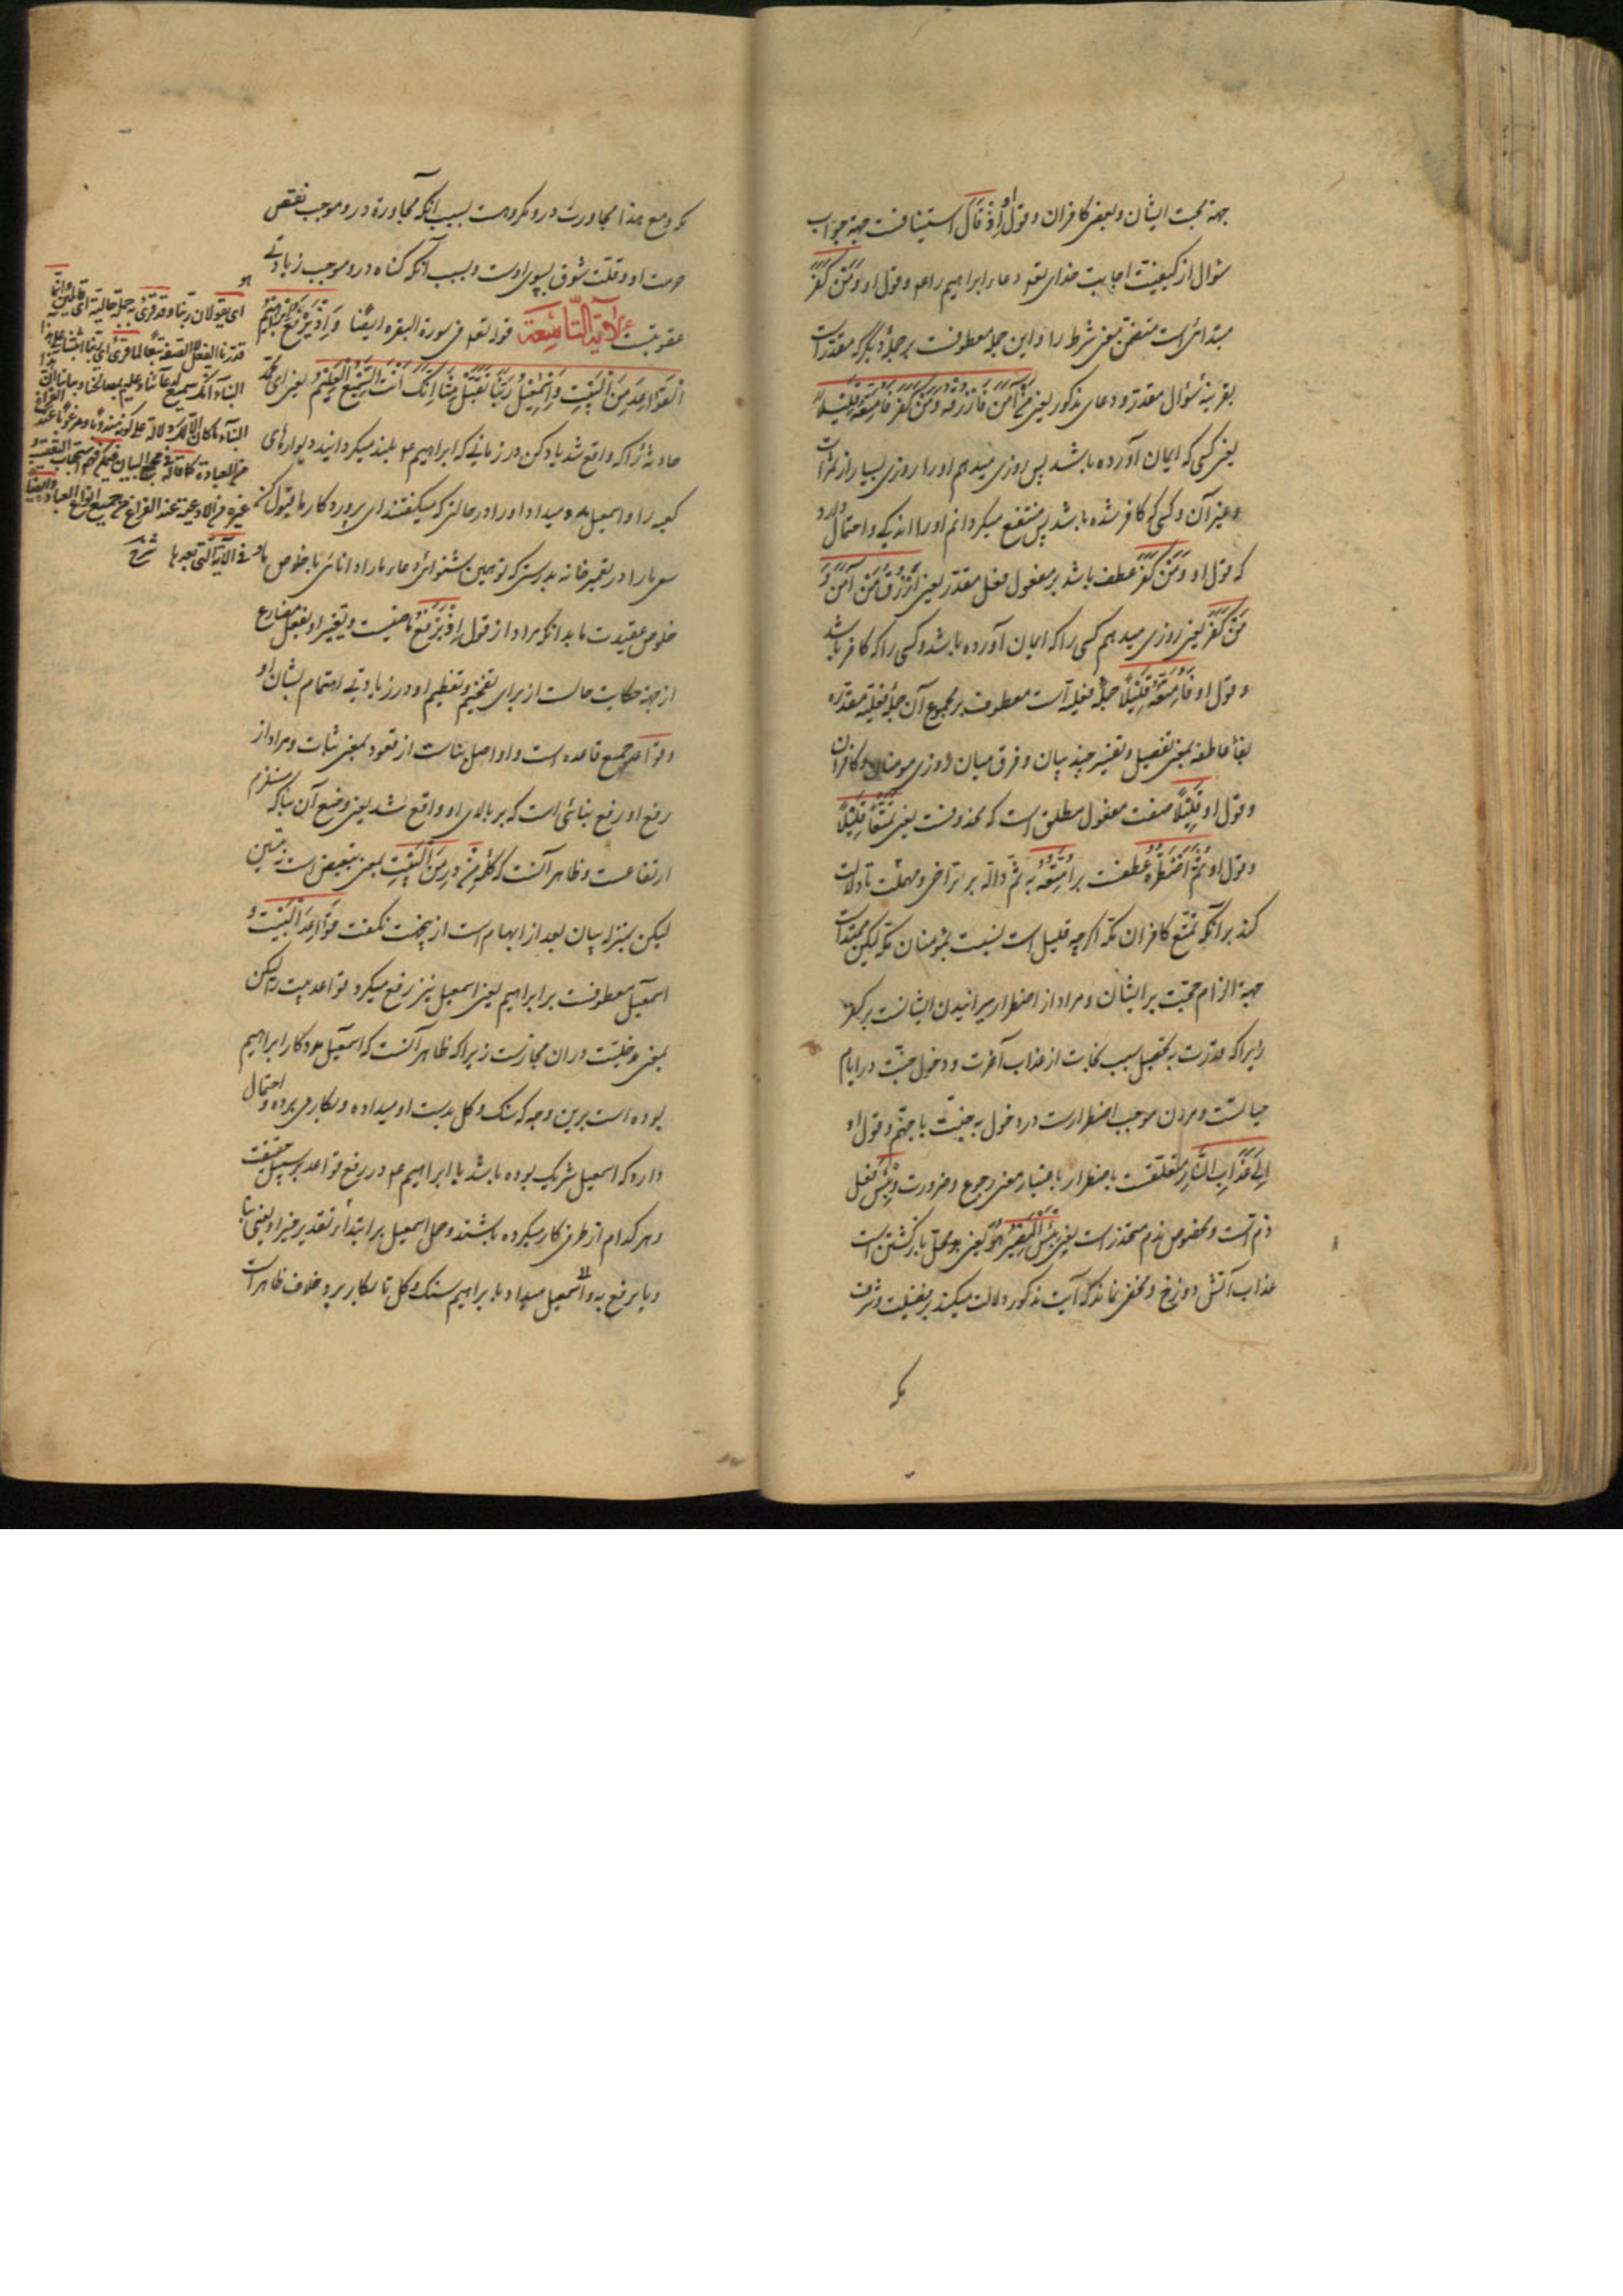 جهة محبت ایشان و بعض کافران و قول او اِذْ قَالَ استینافست جهة جواب
سؤال از کیفیّت اجابت خدای تع دعاء ابراهیم را و قول او وَمَنْ کَفَرَ
مبتدائی است متضمّن معنی شرط را و این جمله معطوفست بر جملهٔ دیگر که مقدّرست
بقرینهٔ سؤال مقدّر و دعای مذکور یعنی مَنْ آمَنَ فَاَرْزُقُهُ وَمَنْ کَفَرَ فَاُمَتِّعُهُ قَلِیلاً
یعنی کسی که ایمان آورده باشد پس روزی میدهم او را روزی بسیار از ثمرات
و غیر آن و کسی که کافر شده باشد پس منتفع میکردانم او را اندکی و احتمال دارد
که قول او وَمَنْ کَفَرَ عطف باشد بر مفعول فعل مقدّر یعنی اَرْزُقُ مَنْ آمَنَ وَ
مَنْ کَفَرَ یعنی روزی میدهم کسی را که ایمان آورده باشد و کسی را که کافر باشد
و قول او فَاُمَتِّعُهُ قَلِیلاً جملهٔ فعلیه است معطوف بر مجموع آن جملهٔ فعلیّه مقدّره
بفاء عاطفه بمعنی تفصیل و تفسیر جهة بیان و فرق میان روزی مومنان و کافران
و قول او قَلِیلاً صفت مفعول مطلق است که محذوفست یعنی تَمَتُّعاً قَلِیلاً
و قول او ثُمَّ اَضْطَرُّهُ عطفست بر اُمَتِّعُهُ به ثمّ دالّه بر تراخی و مهلت تا دلالت
کند بر آنکه تمتّع کافران مکه اکرچه قلیل است نسبت بمؤمنان مکه لیکن ممتدّاست
جهة الزام حجّت بر ایشان و مراد از اضطرار میرانیدن ایشانست بر کفر
زیرا که قدرت به تحصیل سبب نجات از عذاب آخرت و دخول جنّت در ایام
حیاتست و مردن موجب اضطرارست در دخول به جنّت یا جهنّم و قول او
اِلَی عَذَابِ النَّارِ متعلّقست باضطرار باعتبار معنی رجوع و ضرورت و بِئْسَ فعل
ذم است و مخصوص بذم محذوف است یعنی بِئْسَ الْمَصِیرُ هُوَ یعنی بد محلّ بازکشتن است
عذاب آتش دوزخ و مخفی نماند که آیت مذکوره دلالت میکند بر فضیلت و شرف
مکه
مکه و مع هذا مجاورت در و مکروهست بسبب آنکه مجاورة در و موجب نقص
حرمت او و قلّت شوق بسوی اوست و بسبب آنکه کناه در و موجب زیادتی
عقوبتست الآیة التّاسعة قوله تع فی سورة البقره ایضاً وَاِذْ یَرْفَعُ اِبْراهِیمُ
الْقَوَاعِدَ مِنَ الْبَیْتِ وَاِسْمٰعِیلُ رَبَّنَا تَقَبَّلْ مِنَّا اِنَّکَ اَنْتَ السَّمِیعُ الْعَلِیمُ یعنی ای محمّد
حادثه را که واقع شد یاد کن در زمانی که ابراهیم ع بلند میکردانید دیوارهای
کعبه را و اسمعیل مدد میداد او را در حالتی که میکفتند ای پروردکار ما قبول کن
سعی ما را در تعمیر خانه بدرستی که تو همین شنوائی دعاء ما را دانائی با خلوص ما
خلوص عقیدت ما بدانکه مراد از قول اِذْ یَرْفَعُ ماضیست و تعبیر او بفعل مضارع
از جهة حکایت حالست از برای تفخیم و تعظیم او در زیادتی اهتمام بشان او
و قواعد جمع قاعده است و او اصل بناست از قعود بمعنی ثبات و مراد از
رفع او رفع بنائی است که بر بالای او واقع شد یعنی وضع آن بنا که مستلزم
ارتفاعست و ظاهر آنست که کلمهٔ مِنْ در مِنَ الْبَیْتِ بمعنی تبعیض است نه تبیین
لیکن بمنزله بیان بعد از ابهام است ازینجهت نکفت قَوَاعِدَ الْبَیْتِ و
اسمعیل معطوفست بر ابراهیم یعنی اسمعیل نیز رفع میکرد قواعد بیت را لیکن
بمعنی مدخلیّت در ان مجازست زیرا که ظاهر آنست که اسمعیل مددکار ابراهیم
بوده است برین وجه که سنک و کل بدست او میداده و بکار می برده و احتمال
دارد که اسمعیل شریک بوده باشد با ابراهیم ع در رفع قواعد بر سبیل حقیقت
و هر کدام از طرفی کار میکرده باشند و حمل اسمعیل بر ابتدا و تقدیر خبر او یعنی بنا
و یا یرفع یدو اسمعیل میداد بابراهیم سنک و کل تا بکار برد خلاف ظاهرست
ای یقولان ربّنا و قد قرئ جملة حالیّة ای قائلین